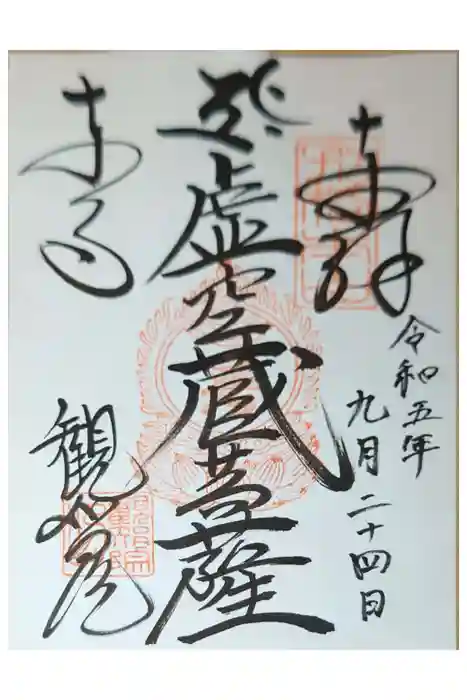 奉拝
令和五年
九月二十四日
虚空蔵菩薩
東寺
観智院